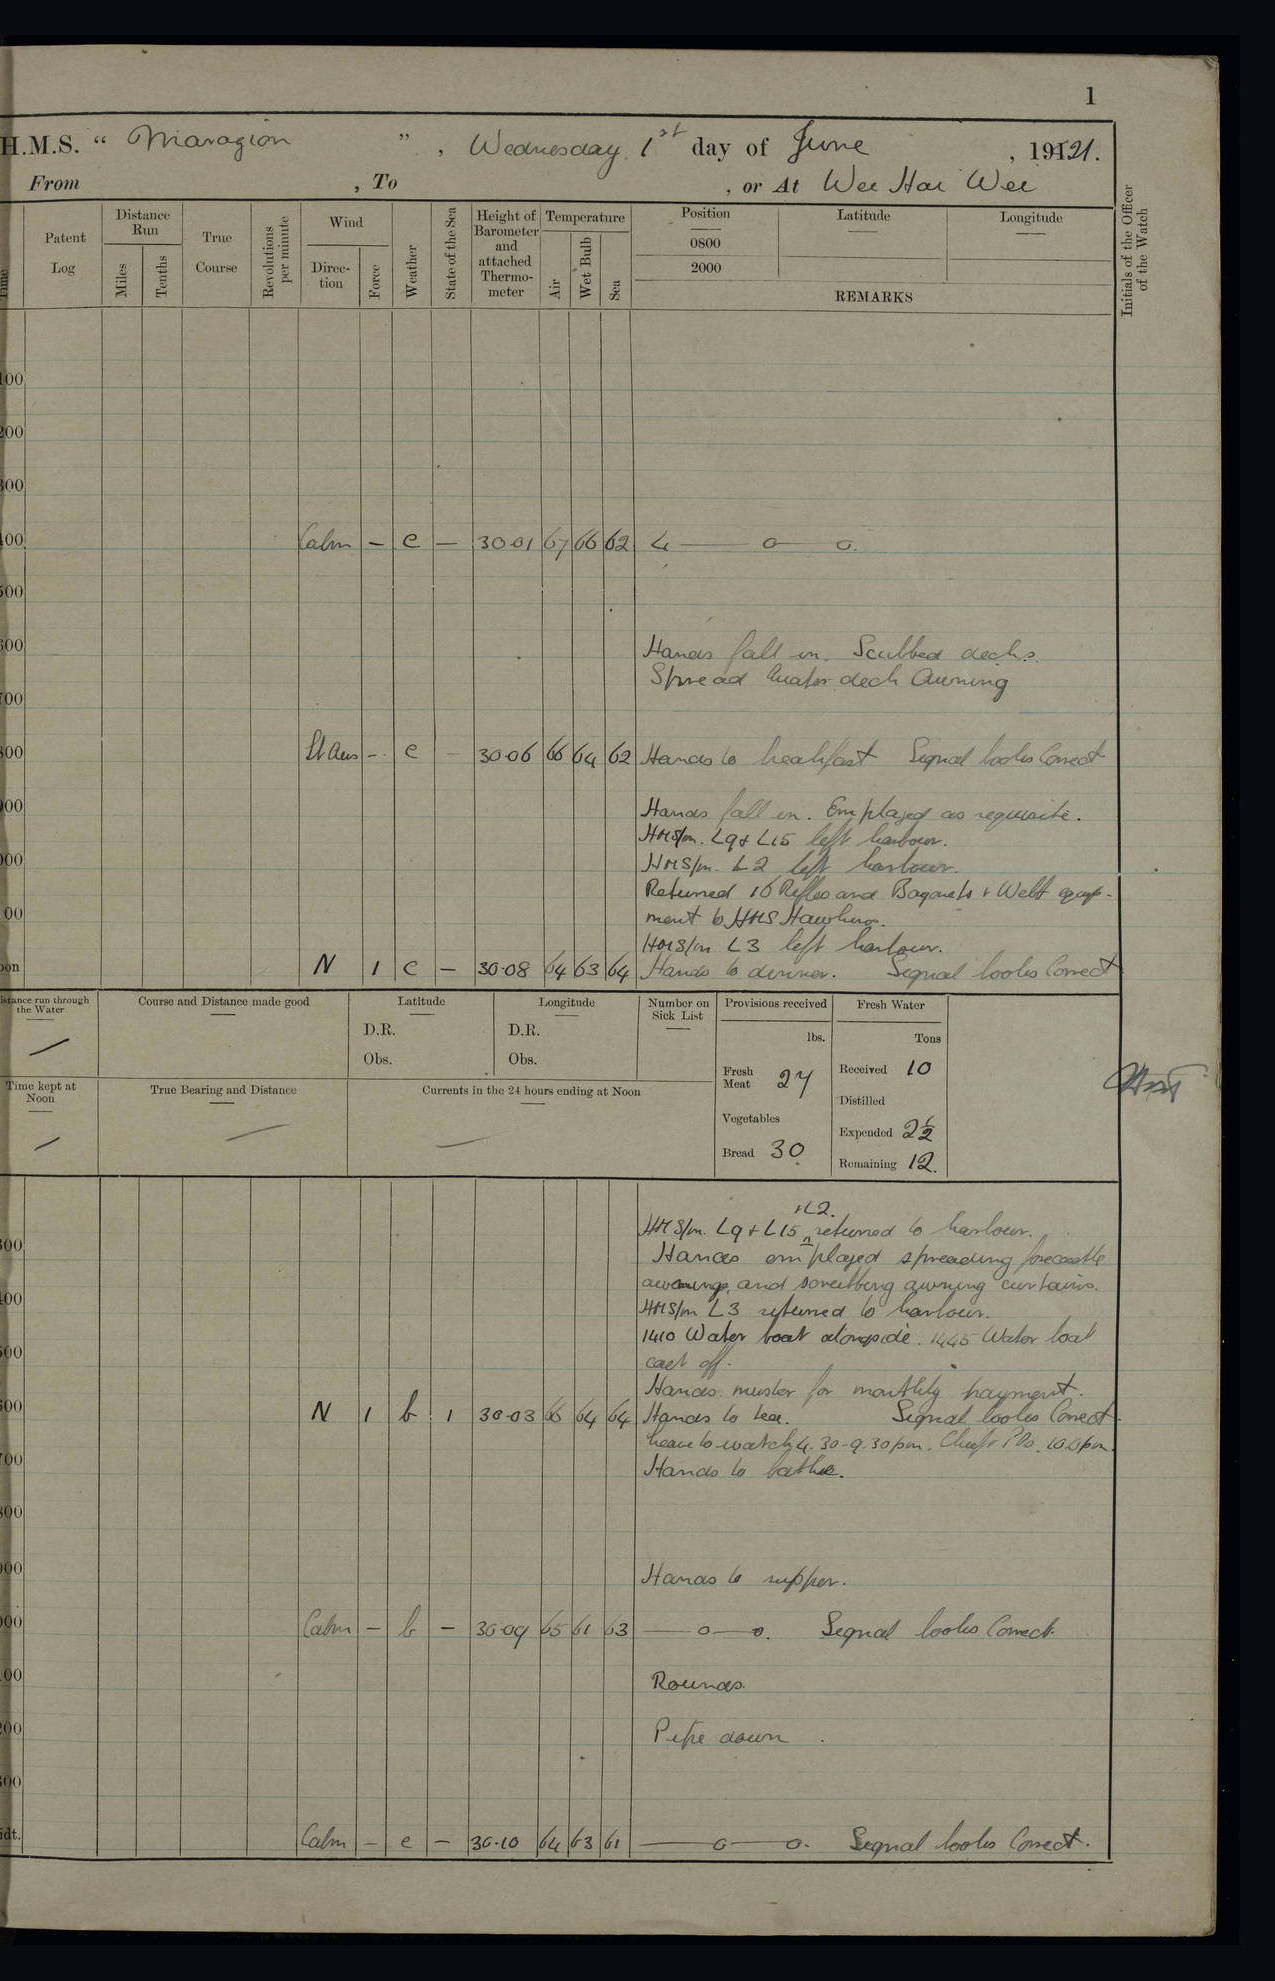 1
H.M.S. “ Marazion ” , Wednesday 1st day of June , 1921.
From , To , or At Wei Hai Wei
Patent Log
Distance Run
Miles
Tenths
True Course
Revolutions per minute
Wind
Direction
Force
Weather
State of the Sea
Height of Barometer and attached Thermometer
Temperature
Air
Wet Bulb
Sea
Position
0800
2000
Latitude
Longitude
REMARKS
Initials of the Officer of the Watch
Calm – c – 30·01 67 66 62
Hands fall in. Scubbed decks.
Spread Quater deck Awning
Lt Airs – c – 30·06 66 64 62 Hands to breakfast Signal books Correct
Hands fall in. Employed as requisite.
HMS/m. L9 & L15 left harbour.
HMS/m. L2 left harbour.
Returned 16 Rifles and Bayonets & Webb equip-
ment to HMS Hawkins.
HMS/m L3 left harbour.
N 1 c – 30·08 64 63 64 Hands to dinner. Signal books Correct
Distance run through the Water
Course and Distance made good
Latitude
D.R.
Obs.
Longitude
D.R.
Obs.
Number on Sick List
Provisions received
lbs.
Fresh Meat 27
Vegetables
Bread 30
Fresh Water
Tons
Received 10
Distilled
Expended 2½
Remaining 12.
Time kept at Noon
True Bearing and Distance
Currents in the 24 hours ending at Noon
+L2.
HMS/m. L9 + L15 returned to harbour.
Hands employed spreading forecastle
awnings, and scrubbing awning curtains.
HMS/m L3 returned to harbour.
1410 Water boat alongside. 1445 Water boat
cast off.
Hands muster for monthly payment.
N 1 b 1 30·03 66 64 64 Hands to tea. Signal books Correct.
Leave to watch 4.30–9.30pm. Chiefs POs. 10.0pm.
Hands to bathe.
Hands to supper.
Calm – b – 30·09 65 61 63 Signal books Correct.
Rounds.
Pipe down.
Calm – c – 30·10 64 63 61 Signal books Correct.